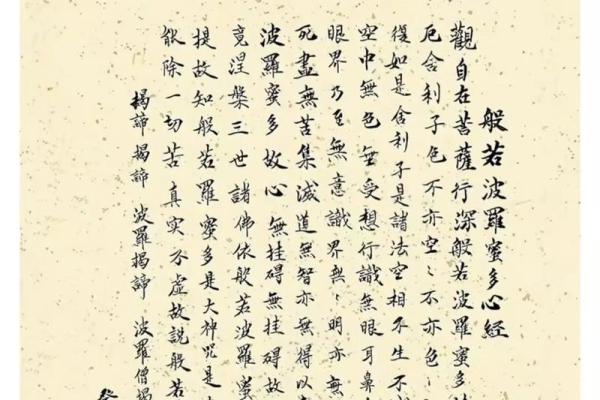 般若波羅蜜多心經
觀自在菩薩行深般若波羅蜜多
厄舍利子色不亦空〻不亦色〻
復如是舍利子是諸法空相不生不
空中無色無受想行識無眼耳鼻
眼界乃至無意識界無〻明亦無
死盡無苦集滅道無智亦無得以
波羅蜜多故心無挂碍無挂碍故
竟涅槃三世諸佛依般若波羅蜜
提故知般若羅蜜多是大神咒是
能除一切苦真实不虛故説般若
揭諦揭諦 波羅揭諦 波羅僧揭